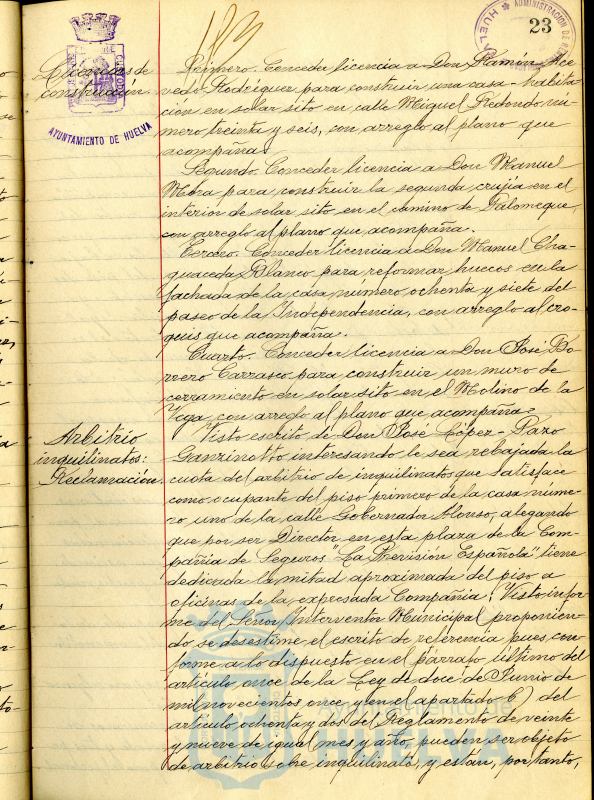 23
HUELVA
ADMINISTRACION DE
AYUNTAMIENTO DE HUELVA
Licencias de
construccion.
Primero. Conceder licencia a Don Ramón Ace
vedo Rodriguez para construir una casa habita
ción en solar sito en calle Miguel Redondo nú
mero treinta y seis, con arreglo al plano que
acompaña.
Segundo. Conceder licencia a Don Manuel
Mora para construir la segunda crujía en el
interior de solar sito en el camino de Palomeque,
con arreglo al plano que acompaña.
Tercero. Conceder licencia a Don Manuel Cha
guaceda Blanco para reformar huecos en la
fachada de la casa número ochenta y siete del
paseo de la Independencia, con arreglo al cro
quis que acompaña.
Cuarto. Conceder licencia a Don José Bo
rrero Carrasco para construir un muro de
cerramiento en solar sito en el Molino de la
Vega, con arreglo al plano que acompaña.
Arbitrio
inquilinatos:
Reclamación.
Visto escrito de Don José López-Pazo
Ganzinotto interesando le sea rebajada la
cuota del arbitrio de inquilinatos que satisface
como ocupante del piso primero de la casa núme
ro uno de la calle Gobernador Alonso, alegando
que por ser Director en esta plaza de la Com
pañia de Seguros "La Previsión Española" tiene
dedicada la mitad aproximada del piso a
oficinas de la expresada Compañia; Visto infor
me del Señor Interventor Municipal proponien
do se desestime el escrito de referencia pues, con
forme a lo dispuesto en el párrafo último del
artículo once de la Ley de doce de Junio de
mil novecientos once y en el apartado 6) del
artículo ochenta y dos del Reglamento de veinte
y nueve de igual mes y año, pueden ser objeto
de arbitrio sobre inquilinato, y estan, por tanto,
Ayuntamiento de
HUELVA